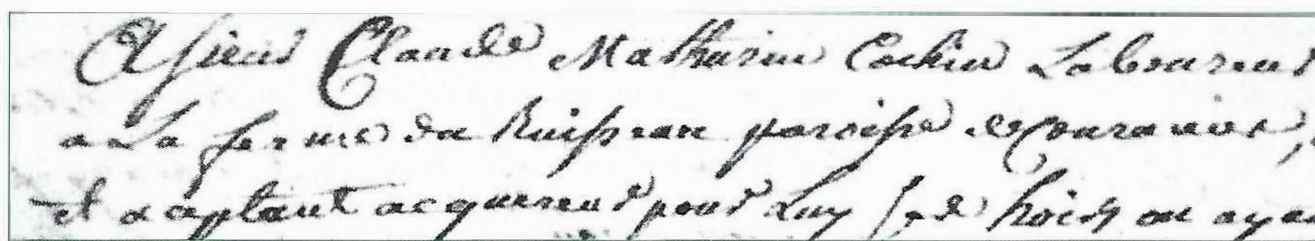 A Sieur Claude Mathurin Cochin Laboureur
a La ferme du Ruisseau paroisse de Couranier,
et acceptant acquereur pour Luy ses hoirs ou aya